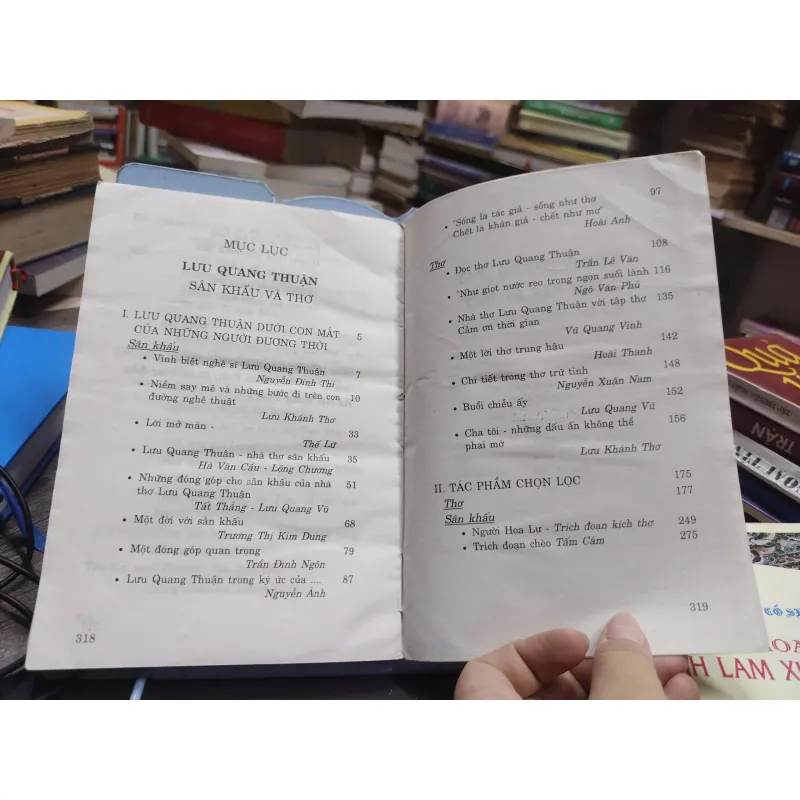 MỤC LỤC
LƯU QUANG THUẬN
SÂN KHẤU VÀ THƠ
I. LƯU QUANG THUẬN DƯỚI CON MẮT 5
CỦA NHỮNG NGƯỜI ĐƯƠNG THỜI
Sân khấu
• Vĩnh biệt nghệ sĩ Lưu Quang Thuận 7
Nguyễn Đình Thi
• Niềm say mê và những bước đi trên con 10
đường nghệ thuật
Lưu Khánh Thơ
• Lời mở màn - 33
Thế Lữ
• Lưu Quang Thuận - nhà thơ sân khấu 35
Hà Văn Cầu - Lộng Chương
• Những đóng góp cho sân khấu của nhà 51
thơ Lưu Quang Thuận
Tất Thắng - Lưu Quang Vũ
• Một đời với sân khấu 68
Trương Thị Kim Dung
• Một đóng góp quan trọng 79
Trần Đình Ngôn
• Lưu Quang Thuận trong ký ức của .... 87
Nguyễn Anh
318
• "Sống là tác giả - sống như thơ 97
Chết là khán giả - chết như mơ"
Hoài Anh
Thơ
• Đọc thơ Lưu Quang Thuận 108
Trần Lê Văn
• "Như giọt nước reo trong ngọn suối lành 116
Ngô Văn Phú
• Nhà thơ Lưu Quang Thuận với tập thơ 135
Cảm ơn thời gian
Vũ Quang Vinh
• Một lời thơ trung hậu 142
Hoài Thanh
• Chi tiết trong thơ trữ tình 148
Nguyễn Xuân Nam
• Buổi chiều ấy 152
Lưu Quang Vũ
• Cha tôi - những dấu ấn không thể 156
phai mờ
Lưu Khánh Thơ
II. TÁC PHẨM CHỌN LỌC 175
Thơ 177
Sân khấu
• Người Hoa Lư - Trích đoạn kịch thơ 249
• Trích đoạn chèo Tấm Cám 275
319
TRẬN